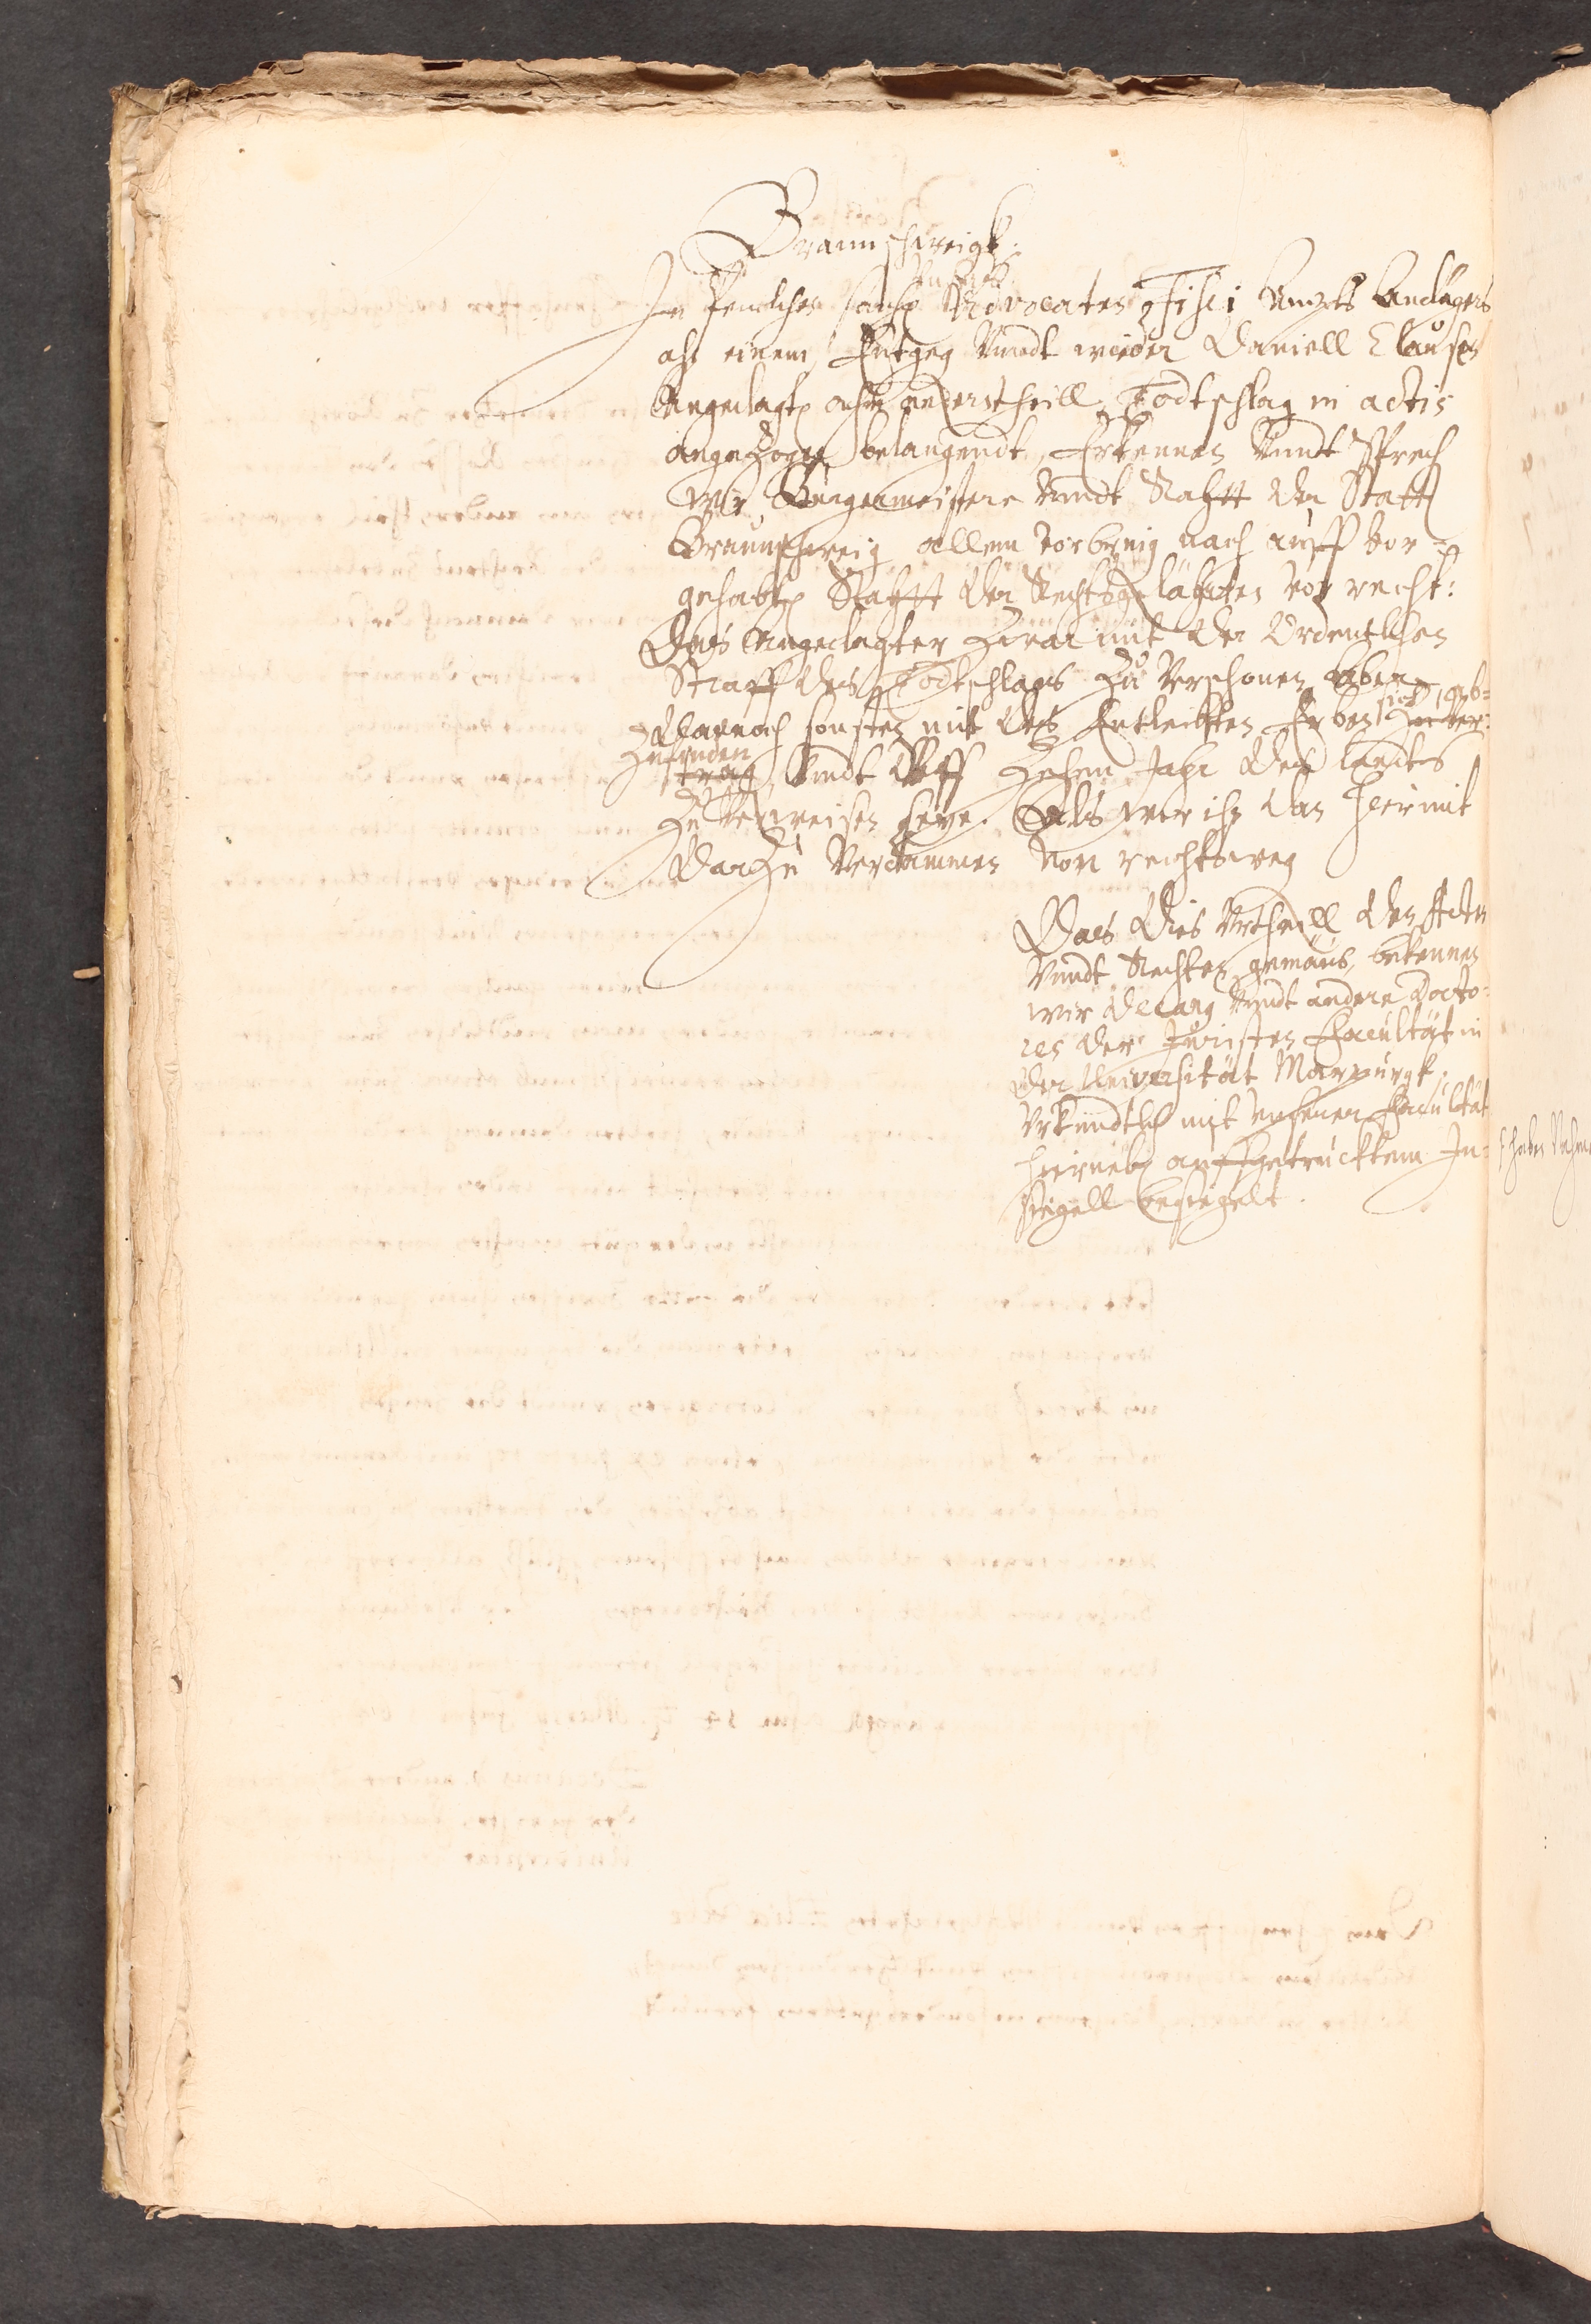 Braunschweigk.
In Peinlichen sachen Advocaten Fisci Ampts Anclägers
ahn einem, Entgeg Vnndt wieder Daniell Claußen
Angeclagten ahm anderntheill, Todtschlag in actis
angezogen belangendt, Erkennen Vnndt Sprechen
Wir Bürgermeistere Vnndt Rahtt der Statt
Braunschweig allem vorbring nach auff vor-
gehabten Rahtt der Rechtsgelährten vor recht:
Das Angeclagter Zwar mit der Ordentlichen
Straff des Todtschlags Zu Verschonen, Aber
Dannoch sonsten mit des Entleibten Erben sich abzu-
finden Vnndt Vff Zehen Jahr des landts
Zu Verweisen seye. Als wir ihn dan hiermit
Darzu Verdammen Von rechtsweg
Daes Dies Vrtheill den Acten
Vnndt Rechten gemäeß, bekennen
wir Decang Vnndt andere Docto-
res der Juristen Facultät in
der Universität Marpurgk.
Vrkundtlich mit Vnserer Facultät
hierneben auffgetrucktem In-
siegell besiegelt.